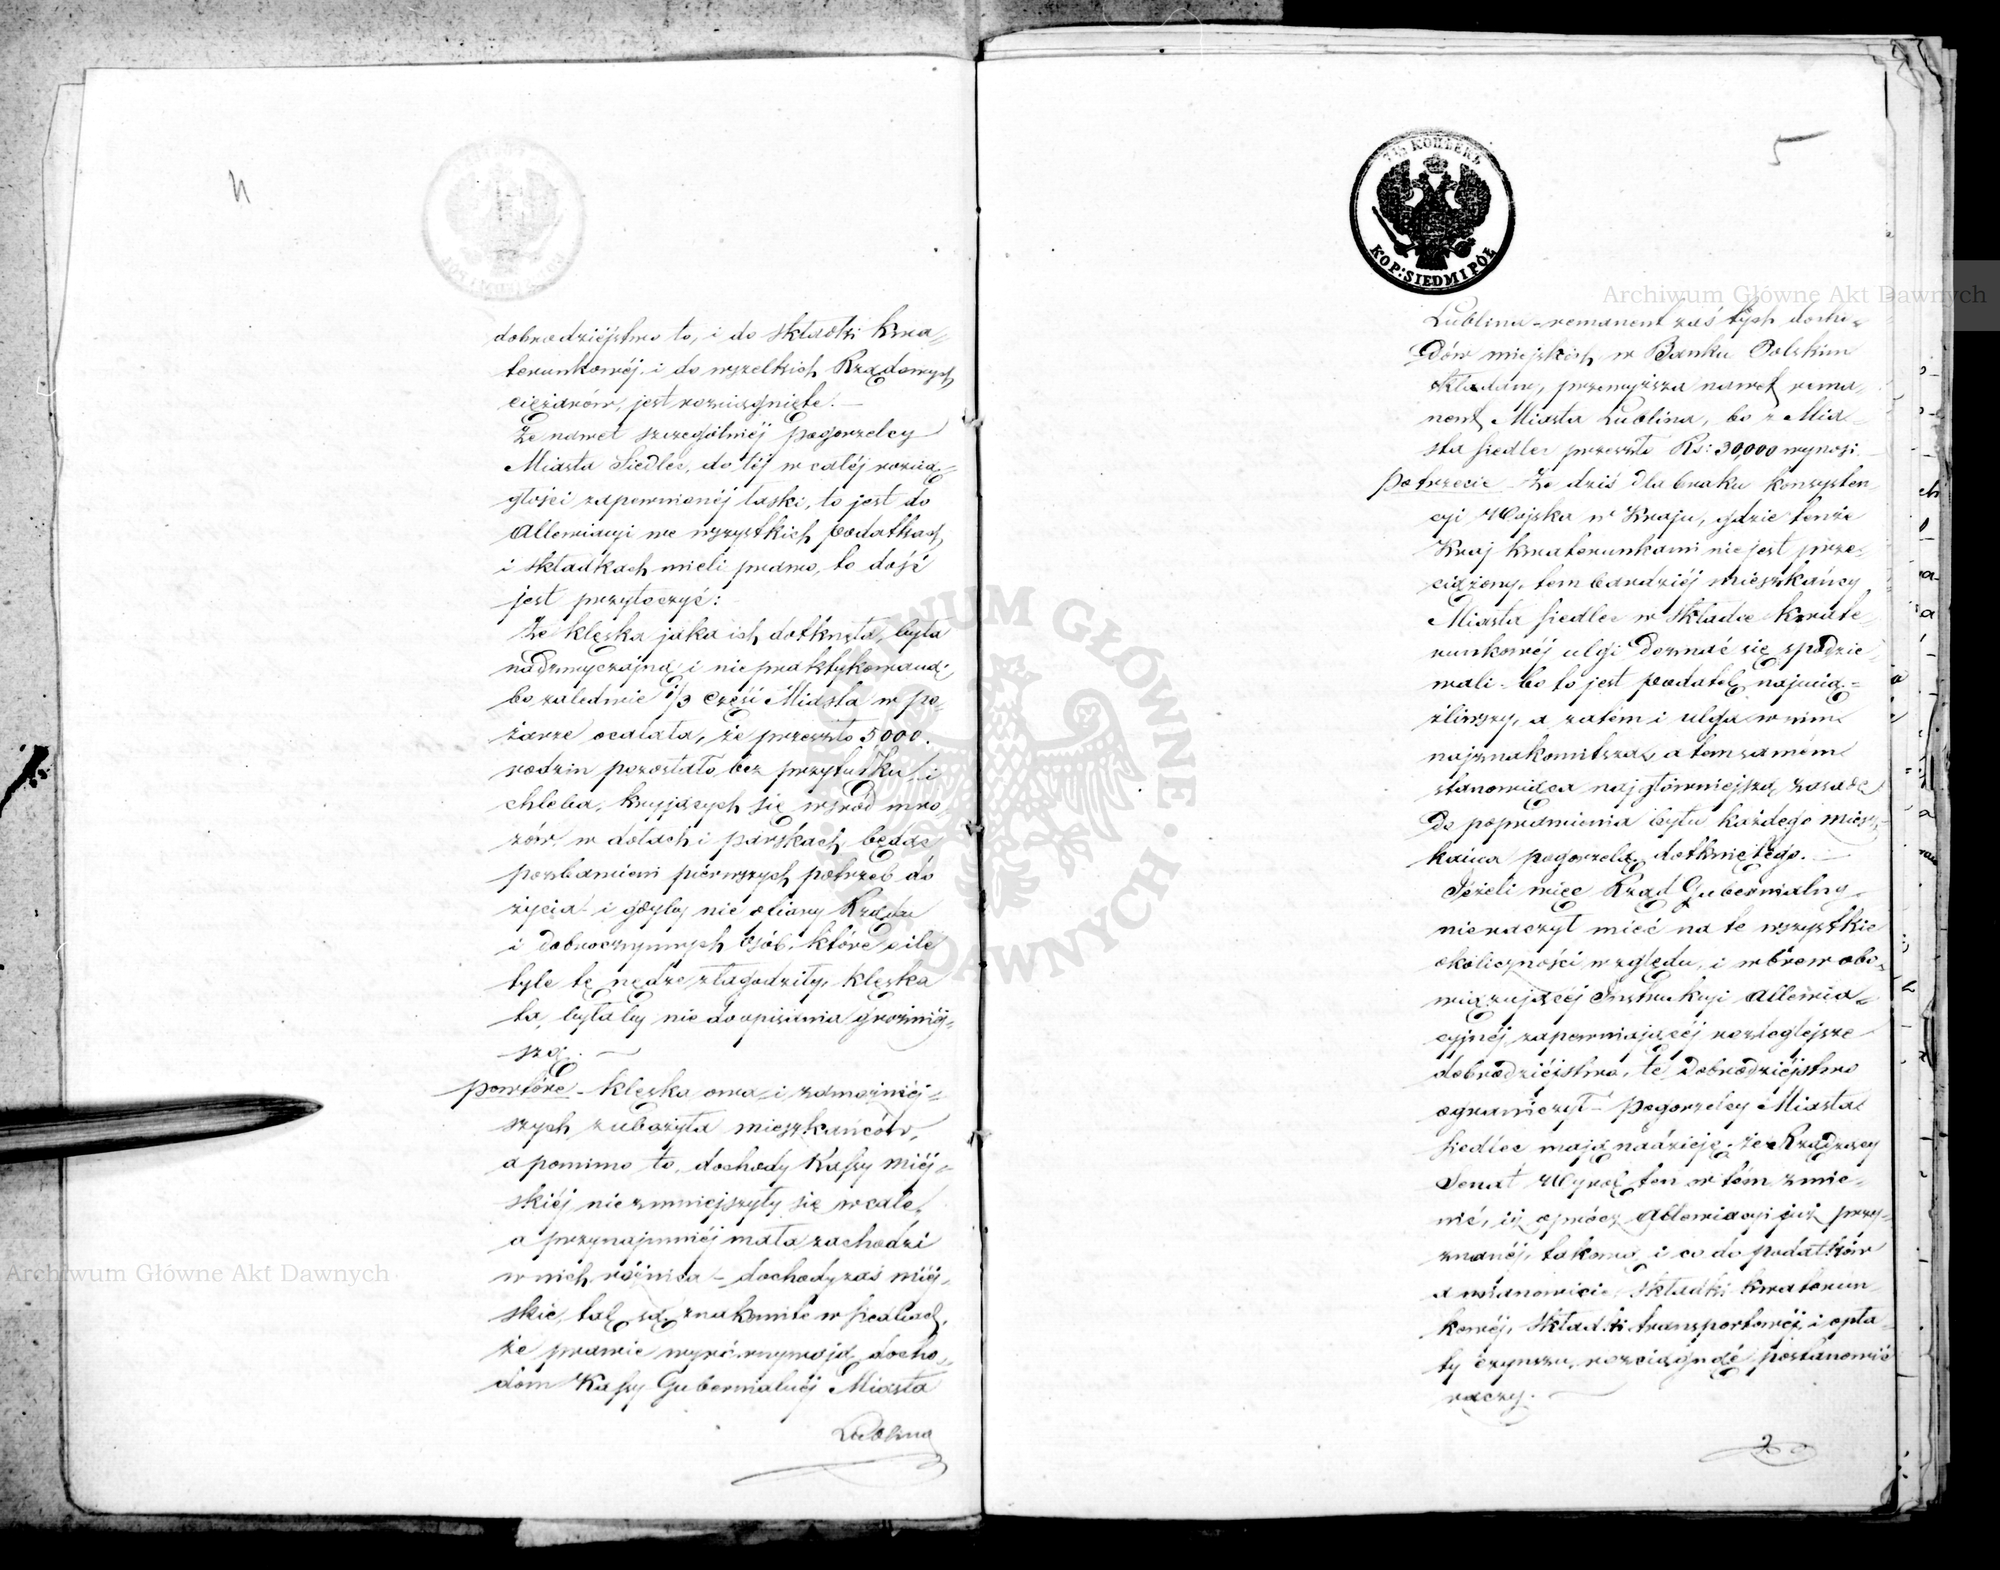 4
dobrodziéjstwo to, i do składki kwa=
terunkowéj i do wszelkich Rządowych
ciężarów, jest rozciągnięte. —
Że nawet szczególniéj pogorzelcy
Miasta Siedlec, do téj w całéj rozcią=
głości zapewnionéj łaski, to jest do
Allewiacyi we wszystkich podatkach
i składkach mieli prawo, to dość
jest przytoczyć:
Że klęska jaka ich dotknęła, była
nadzwyczajną i nie praktykowaną
bo zaledwie 1/3 część Miasta w po=
żarze ocalała, że przeszło 5000.
rodzin pozostało bez przytułku i
chleba, kryjących się wśród mro
zów w dołach i parskach, będąc
pozbawieni piérwszych potrzeb do
życia i gdyby nie Rządu
i dobroczynnych osób, które o ile
tyle tę nędzę złagodziły, klęska
ta, byłaby nie do opisania groźniéj=
szą. —
powtóre – klęska owa i zamożniéj=
szych zubożyła mieszkańców,
a pomimo to, dochody Kassy miéj=
skiéj nie zmniejszyły się wcale,
a przynajmniéj mała zachodzi
w nich różnica – dochody zaś miéj=
skie, tak są znakomite w Siedlcach,
że prawie wyrównywają docho=
dom Kassy Gubernialnéj Miasta
Lublina
5
7½ КОПѢЕКЪ
KOP: SIEDMIPÓŁ
Lublina – remanent zaś tych docho=
dów miejskich w Banku Polskim
składany, przewyższa nawet rema=
nent Miasta Lublina, bo z Mia=
sta Siedlec przeszło Rs: 30,000 wynosi.
Po trzecie – Że dziś dla braku konsysten
cyi Wojska w Kraju, gdzie tenże
Kraj kwaterunkami nie jest prze=
ciążony, tem bardziéj mieszkańcy
Miasta Siedlec w składce kwate=
runkowéj ulgi doznać się spodzie=
wali – bo to jest podatek najucią=
żliwszy, a zatem i ulga w nim
najznakomitsza, a tem samém
stanowiąca najgłówniejszą zasadę
do poprawienia bytu każdego miesz=
kańca pogorzelą dotkniętego. —
Jeżeli więc Rząd Gubernialny
nie raczył mieć na te wszystkie
okoliczności względu, i wbrew obo=
wiązującéj Instrukcyi allewia=
cyjnéj zapewniającéj rozleglejsze
dobrodziéjstwo, te dobrodziéjstwo
ograniczył – pogorzelcy Miasta
Siedlec mają nadzieję, że Rządzący
Senat Wyrok ten w tém zmie=
nić, iż oprócz allewiacyi już przy=
znanéj, takową i co do podatków
a mianowicie składki kwaterun
kowéj, składki transportowéj i opła=
ty czynszu, rozciągnąć postanowić
raczy. —
Archiwum Główne Akt Dawnych
Archiwum Główne Akt Dawnych
ARCHIWUM GŁÓWNE AKT DAWNYCH